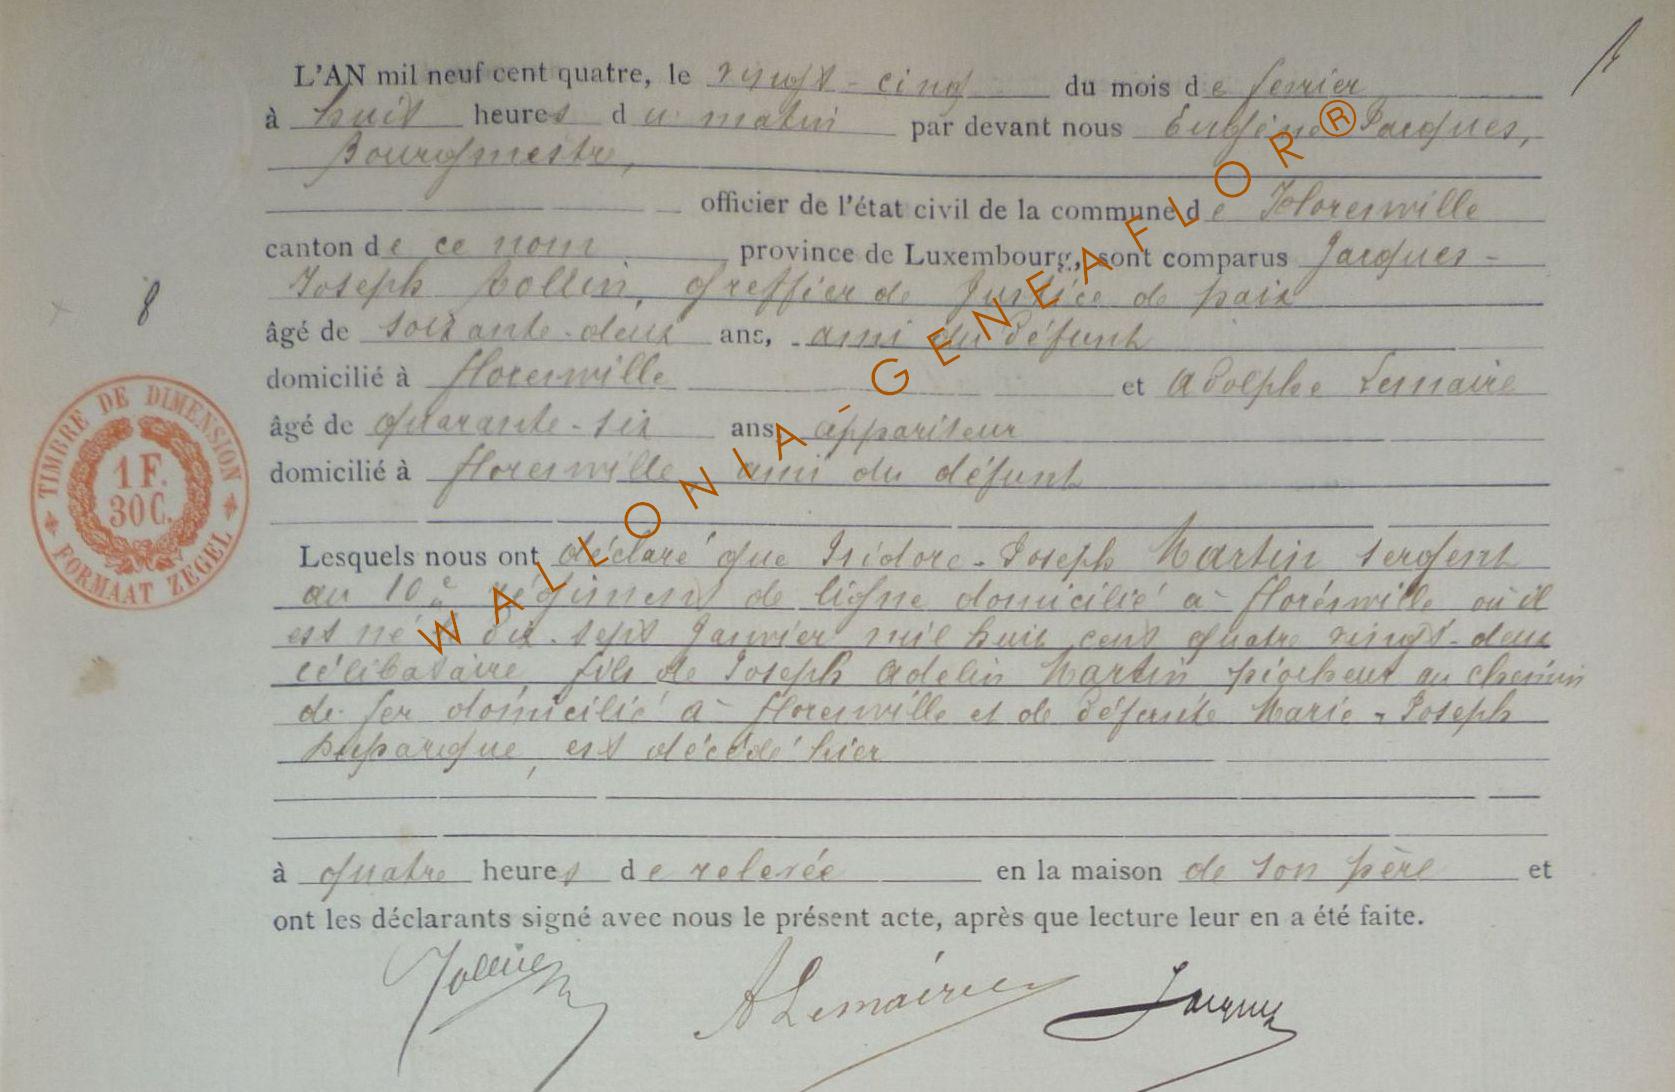 L'AN mil neuf cent quatre, le vingt-cinq du mois de fevrier
à huit heures du matin par devant nous Eugène Jacques,
Bourgmestre,
officier de l'état civil de la commune de Florenville
canton de ce nom province de Luxembourg, sont comparus Jacques-
Joseph Collin, Greffier de Justice de paix
8
âgé de soixante-deux ans, ami du défunt
domicilié à florenville et Adolphe Lemaire
âgé de quarante-six ans, appariteur
domicilié à florenville ami du défunt
TIMBRE DE DIMENSION
1 F.
30 C.
FORMAAT ZEGEL
Lesquels nous ont déclaré que Isidore-Joseph Martin sergent
au 10e régiment de ligne domicilié à florenville où il
est né le dix-sept Janvier mil huit cent quatre vingt-deux
célibataire fils de Joseph Adelin Martin piocheur au chemin
de fer domicilié à florenville et de défunte Marie-Joseph
est décédé hier
à quatre heures de relevée en la maison de son père et
ont les déclarants signé avec nous le présent acte, après que lecture leur en a été faite.
A Lemaire Jacques
WALLONIA-GENEAFLOR®